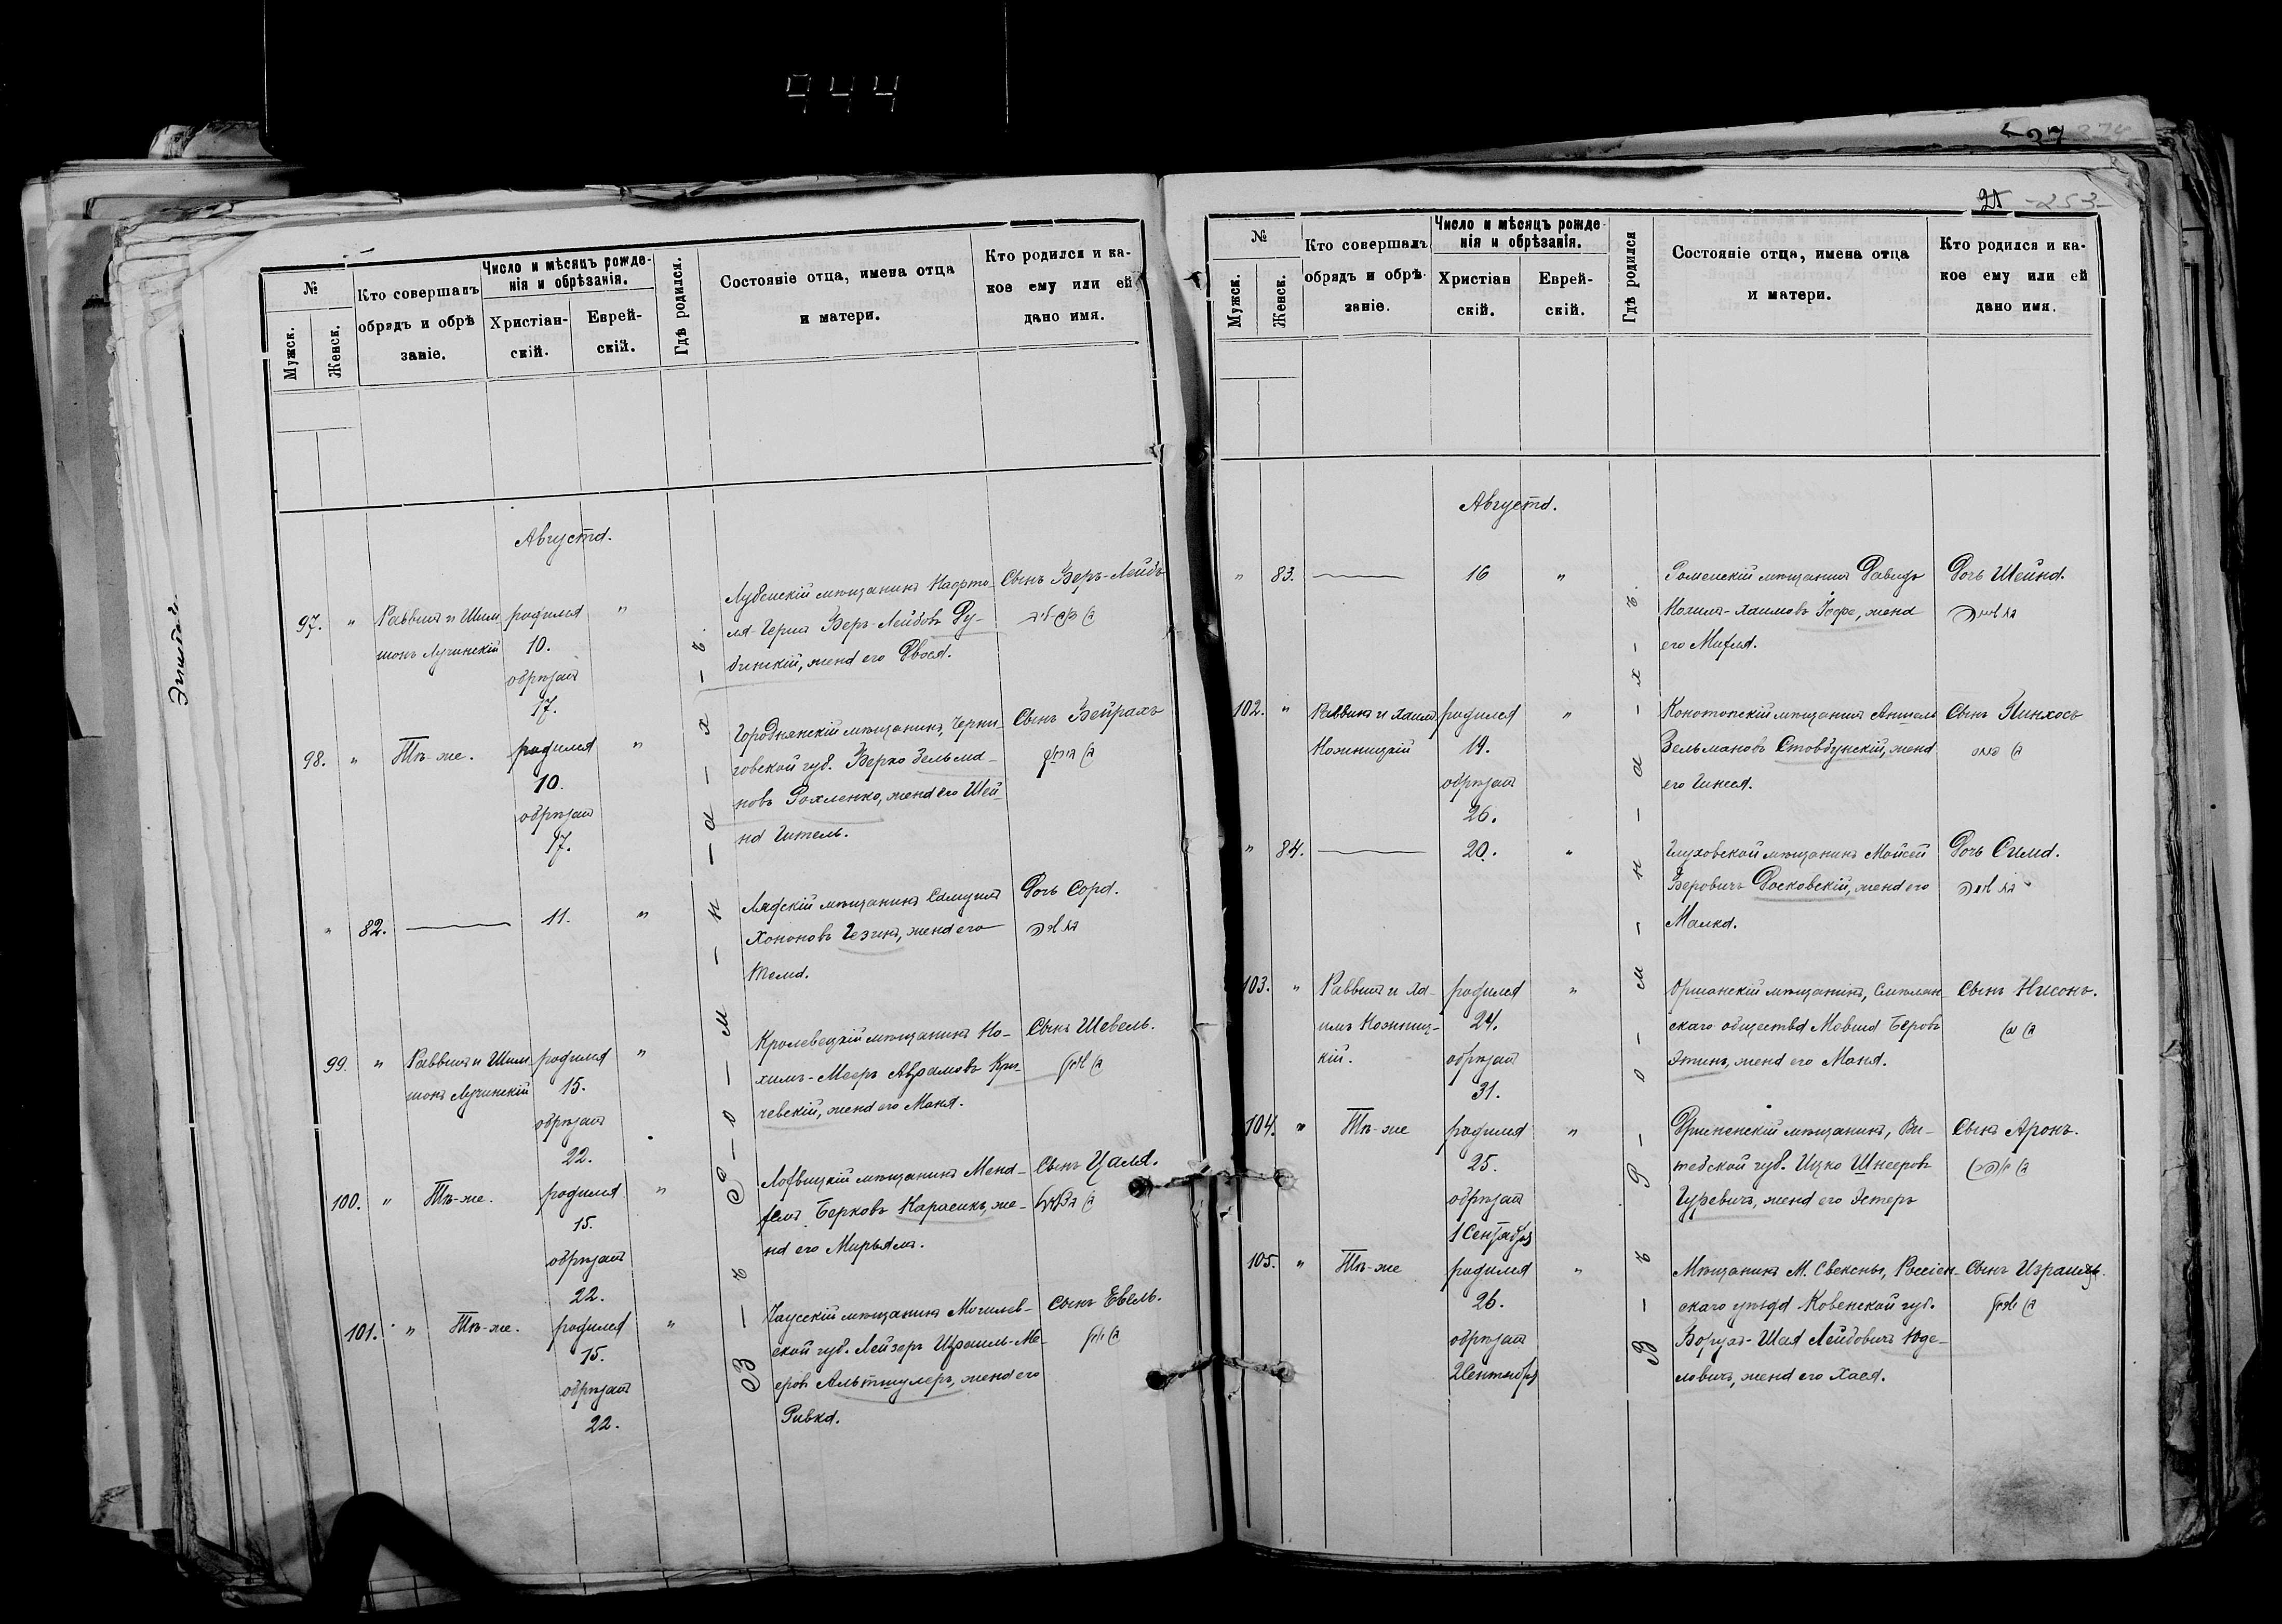 944
37 374
25 -253-
№
Мужск.
Женск.
Кто совершалъ
обрядъ и обрѣ
заніе.
Число и мѣсяцъ рожде-
нія и обрѣзанія.
Христіан-
скій.
Еврей-
скій.
Гдѣ родился.
Состояніе отца, имена отца
и матери.
Кто родился и ка-
кое ему или ей
дано имя.
Августа.
97. " Раввинъ и Шим
шонъ Лучинскій
родился
10.
обрѣзанъ
17.
"
Лубенскій мѣщанинъ Нафто-
ля-Герцъ Беръ-Лейбовъ Ру-
бинскій, жена его Двося.
Сынъ Беръ-Лейбъ
98. " Тѣ-же.
родился
10.
обрѣзанъ
17.
"
Городнянскій мѣщанинъ, Черни-
говской губ. Берко Зельма-
новъ Рохленко, жена его Шей-
на Гитель.
Сынъ Вейрахъ
" 82. 11. "
Лядскій мѣщанинъ Самуилъ
Хононовъ Гезинъ, жена его
Тема.
Дочь Сора.
99. " Раввинъ и Шим
шонъ Лучинскій
родился
15.
обрѣзанъ
22.
"
Кролевецкій мѣщанинъ Но-
химъ-Мееръ Абрамовъ Кри-
чевскій, жена его Маня.
Сынъ Шевель.
100. " Тѣ-же.
родился
15.
обрѣзанъ
22.
"
Лохвицкій мѣщанинъ Менд-
Берковъ Карасикъ, же-
на его Мирьямъ.
Сынъ Цаля.
101. " Тѣ-же.
родился
15.
обрѣзанъ
22.
"
Чаусскій мѣщанинъ Могилев-
ской губ. Лейзеръ Израиль-Ме-
еровъ Альтшулеръ, жена его
Ривка.
Сынъ Евель.
В-ъ Р-о-м-н-а-х-ъ.
№
Мужск.
Женск.
Кто совершалъ
обрядъ и обрѣ-
заніе.
Число и мѣсяцъ рожде
нія и обрѣзанія.
Христіан
скій.
Еврей-
скій.
Гдѣ родился
Состояніе отца, имена отца
и матери.
Кто родился и ка-
кое ему или ей
дано имя.
Августа.
" 83. 16 "
Роменскій мѣщанинъ Давидъ
Нохимъ-Хаимовъ Іофе, жена
его
Дочь Шейна.
102. " Раввинъ и Хаимъ
Ножницкій
родился
19.
обрѣзанъ
26.
"
Конотопскій мѣщанинъ Аншель
Зельмановъ Стовбунскій, жена
его Гинея.
Сынъ Пинхосъ
" 84. 20. "
Глуховской мѣщанинъ Мойсей
Беровичъ Досковскій, жена его
Малка.
Дочь Сима.
103. " Раввинъ и Ха-
имъ Ножниц-
кій.
родился
24.
обрѣзанъ
31.
"
Оршанскій мѣщанинъ, Смолян-
скаго общества Мовша Беровъ
Этинъ, жена его Маня.
Сынъ Нисонъ.
104. " Тѣ-же
родился
25.
обрѣзанъ
1 Сентября
"
Дрисненскій мѣщанинъ, Ви-
тебской губ. Ицко Шнееровъ
Гуревичъ, жена его Эстеръ
Сынъ Аронъ.
105. " Тѣ-же
родился
26.
обрѣзанъ
2 Сентября
"
Мѣщанинъ М. Свексны, Россіен-
скаго уѣзда Ковенской губ.
Борухъ-Шая Лейбовичъ Юде-
ловичъ, жена его Хася.
Сынъ Израиль.
В-ъ Р-о-м-н-а-х-ъ.